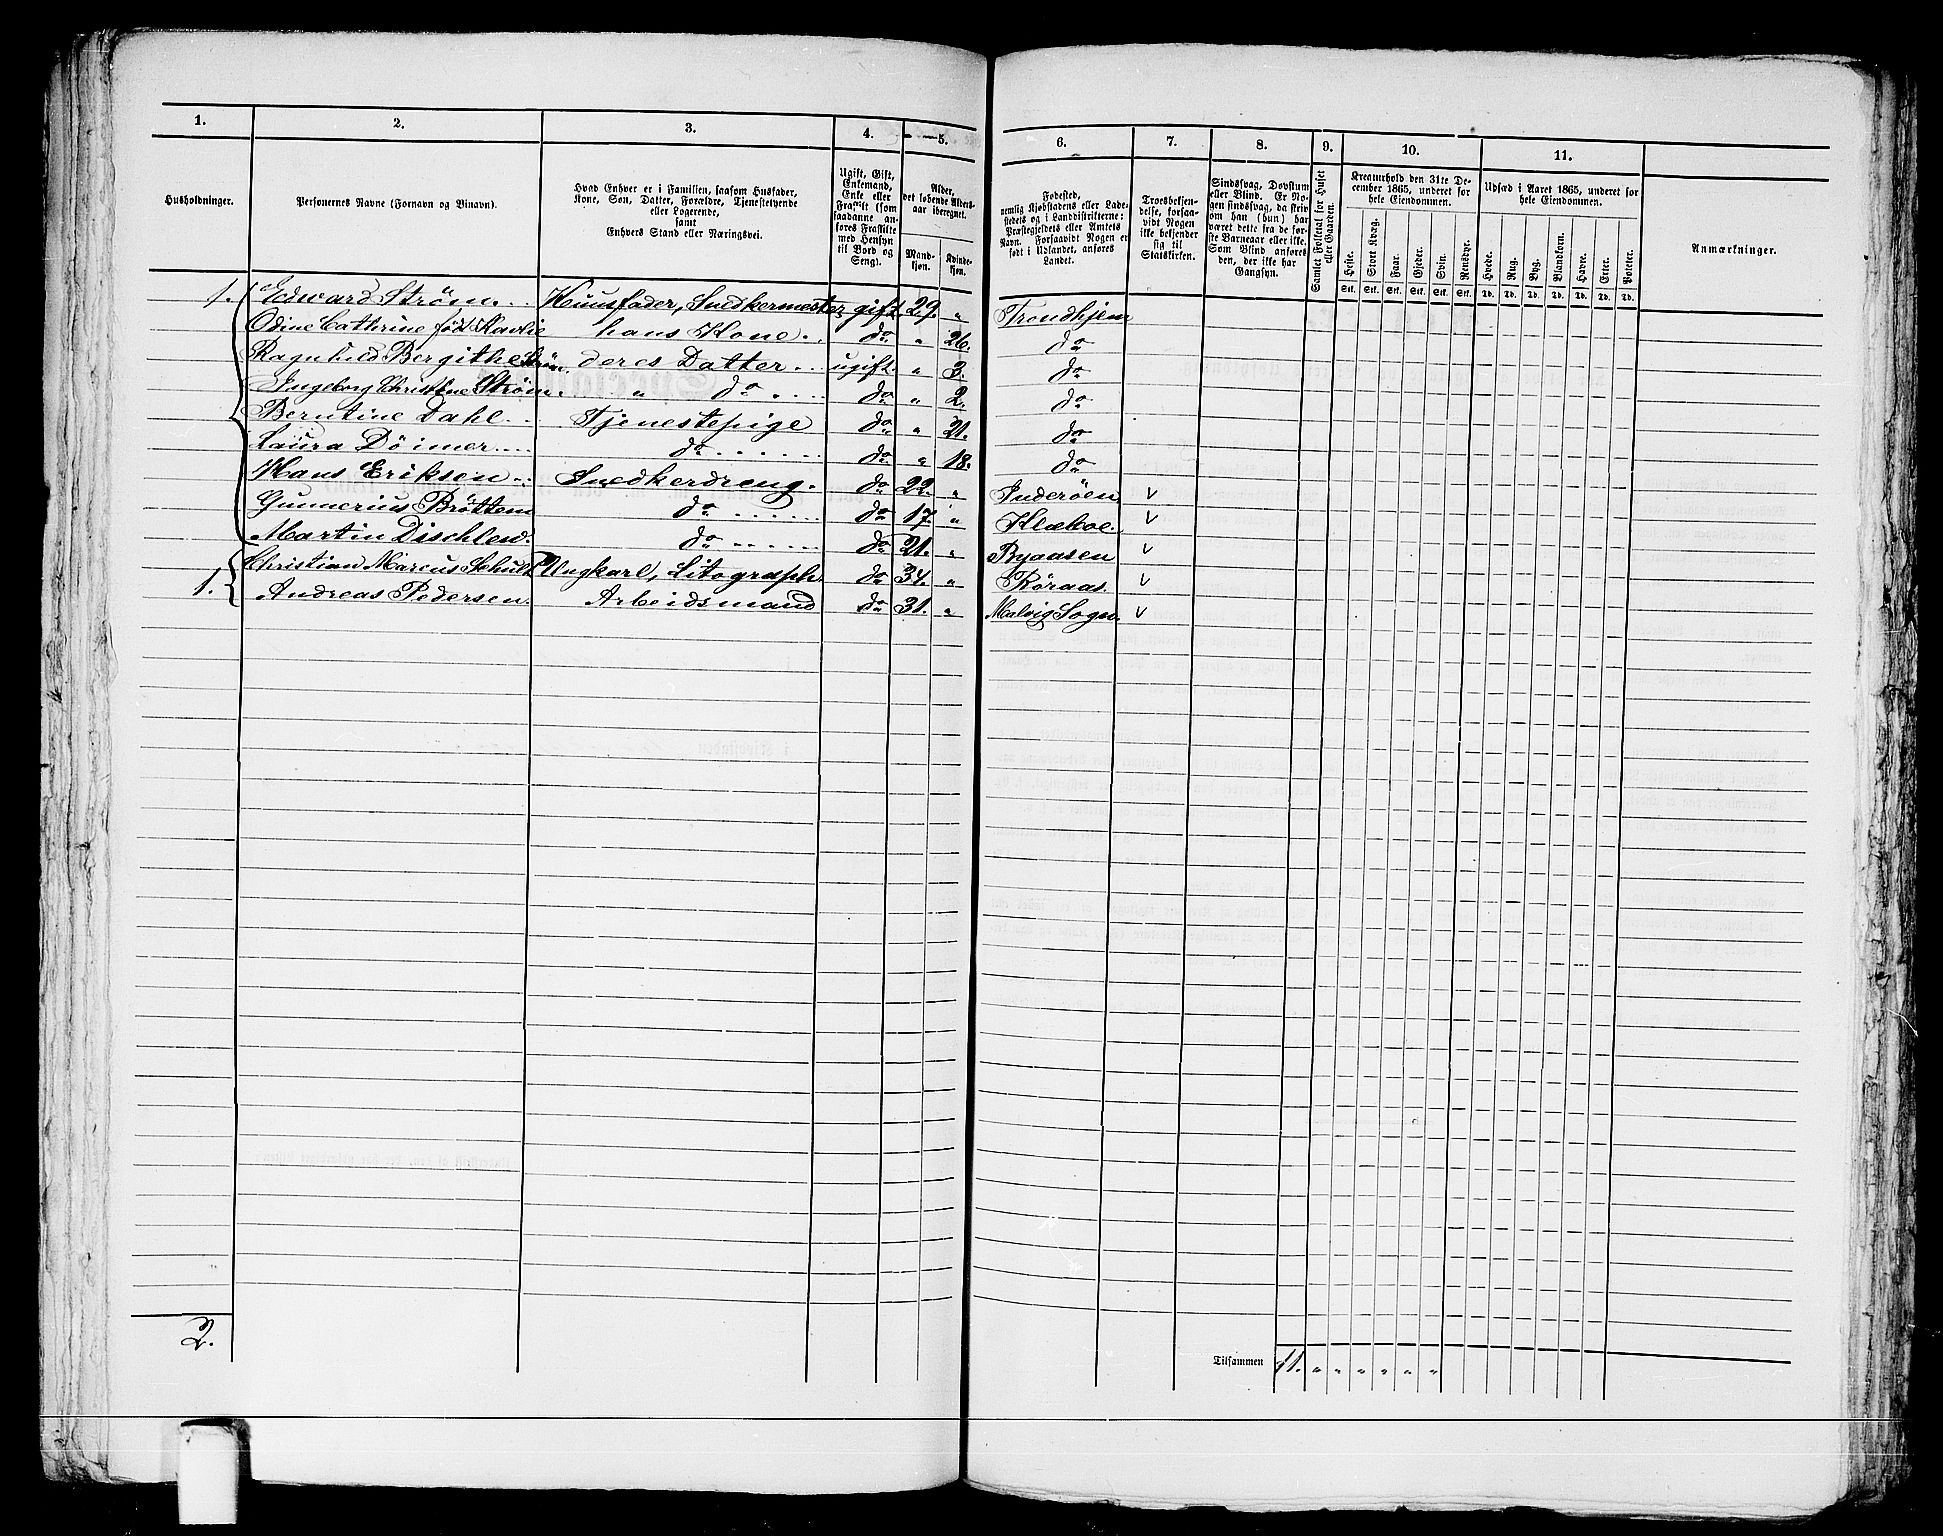 1. 2. 3. 4. 5. 6. 7. 8. 9. 10. 11.
Husholdninger.
Personernes Navne (Fornavn og Binavn).
Hvad Enhver er i Familien, saasom Husfader,
Kone, Søn, Datter, Forældre, Tjenestetyende
eller Logerende,
samt
Enhvers Stand eller Næringsvei.
Ugift, Gift,
Enkemand,
Enke eller
Fraskilt (som
saadanne an-
føres Fraskilte
med Hensyn
til Bord og
Seng).
Alder,
det løbende Alders-
aar iberegnet.
Mand-
kjøn.
Kvinde-
kjøn.
Fødested,
nemlig Kjøbstadens eller Lade-
stedets og i Landdistrikterne:
Præstegjeldets eller Amtets
Navn. Forsaavidt Nogen er
født i Udlandet, anføres
Landet.
Troesbekjen-
delse, forsaa-
vidt Nogen
ikke bekjender
sig til
Statskirken.
Sindssvag, Døvstum
eller Blind. Er No-
gen sindssvag, da skriv
om han (hun) har
været dette fra de før-
ste Barneaar eller ikke.
Som Blind anføres
den, der ikke har
Gangsyn.
Samlet Folketal for Huset
eller Gaarden.
Kreaturhold den 31te De-
cember 1865, underet for
hele Eiendommen.
Heste. Stort Kvæg. Faar. Gjeder. Svin. Rensdyr.
Stk. Stk. Stk. Stk. Stk. Stk.
Udsæd i Aaret 1865, underet for
hele Eiendommen.
Hvede. Rug. Byg. Blandkorn. Havre. Erter. Poteter.
Td. Td. Td. Td. Td. Td. Td.
Anmærkninger.
1. Edward Strøm Huusfader, Snedkermester gift 29. " Trondhjem
Odine Cathrine født hans Kone do " 26. do
Ragnhild Bergithe Strøm deres Datter ugift. " 3. do
Ingeborg Christine Strøm. " do do " 2. do
Berntine Dahl Tjenestepige do " 21. do
Laura Döimer do do " 18. do
Hans Eriksen Snedkerdreng. do 22. " Inderöen v
Gunnerius Bröttem do do 17. " Klæboe. v
Martin Dischlew. do do 21. " Byaasen v
1. Christian Marcus Schultz Ungkarl, Litograph do 34. " Röraas. v
Andreas Pedersen. Arbeidsmand do 31. " Malvig Sogn. v
2.
Tilsammen 11. " " " " " "